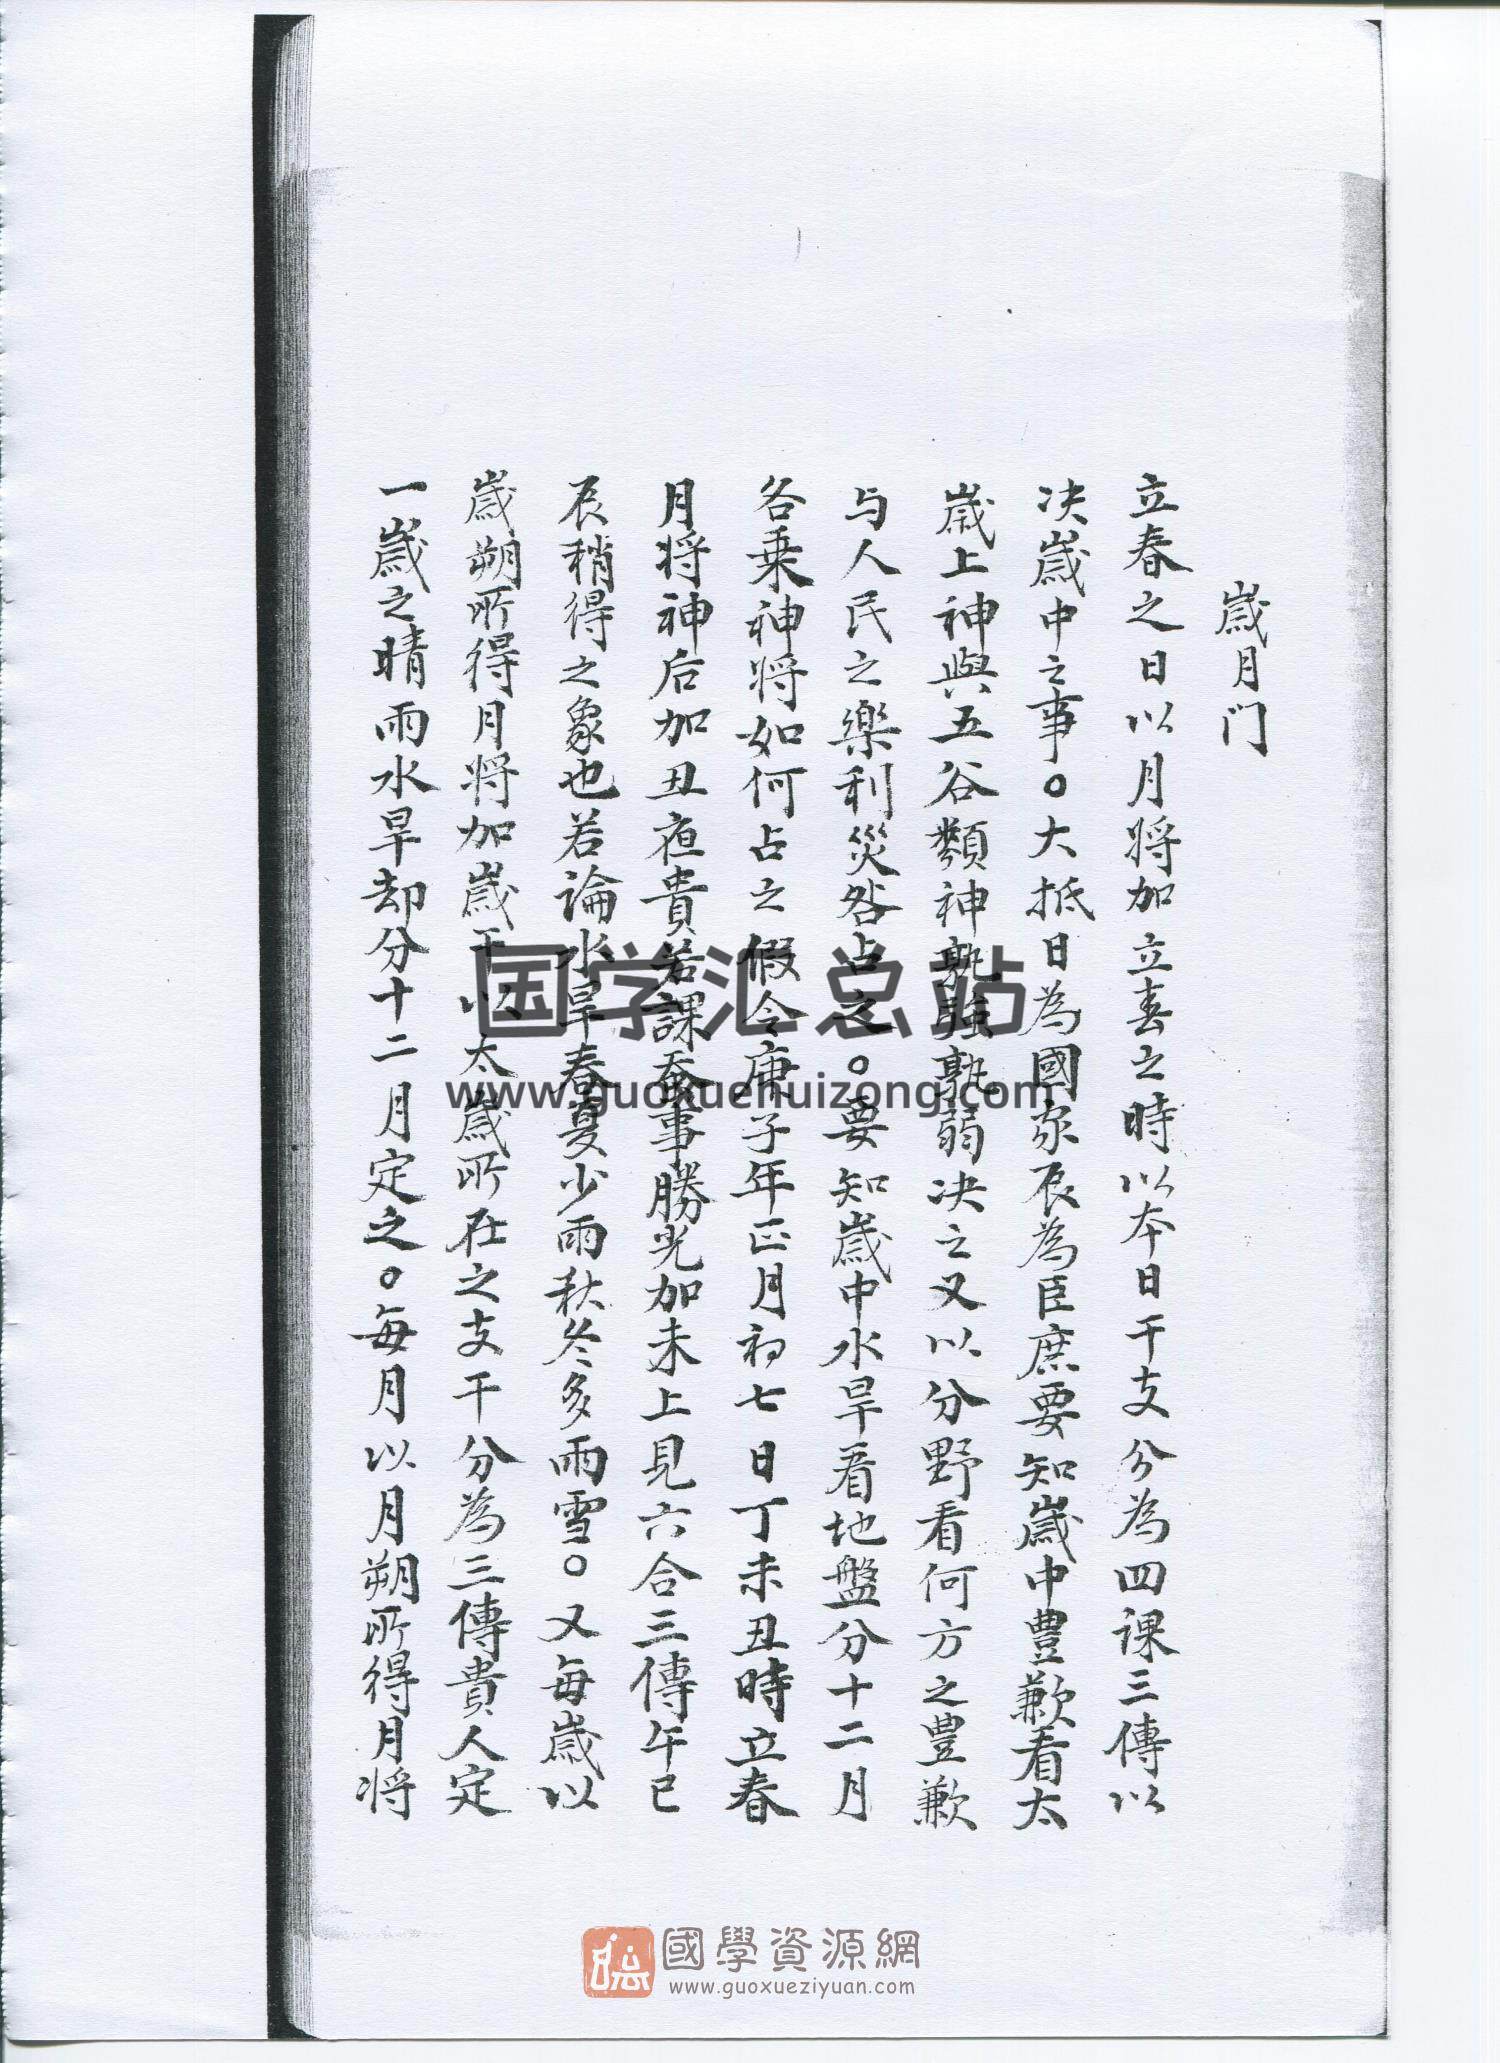 歲月门
立春之日以月將加立春之時以本日干支分為四課三傳以
决歲中之事。大抵日為國家辰為臣庶要知歲中豊歉看太
歲上神與五谷類神孰強孰弱决之又以分野看何方之豊歉
与人民之樂利災咎占之。要知歲中水旱看地盤分十二月
各乗神將如何占之假令庚子年正月初七日丁未丑時立春
月将神后加丑夜貴若課蚕事勝光加未上見六合三傳午巳
辰稍得之象也若論水旱春夏少雨秋冬多雨雪。又每歲以
歲朔所得月將加歲干以太歲所在之支干分為三傳貴人定
一歲之晴雨水旱却分十二月定之。每月以月朔所得月将
国学汇总站
www.guoxuehuizong.com
國學資源網
www.guoxueziyuan.com